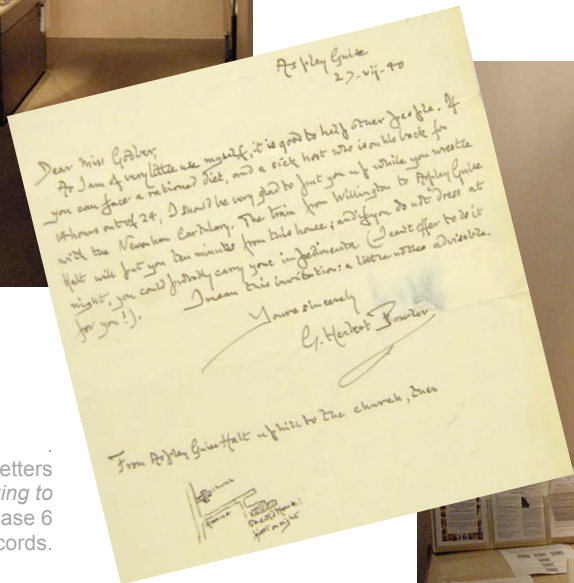 Aspley Guise
27-vij-40
Dear Miss Godber,
As I am of very little use myself, it is good to help other people. If
you can face a rationed diet, and a sick host who is on his back for
14 hours out of 24, I should be very glad to put you up while you wrestle
with the Newnham Cartulary. The train from Willington to Aspley Guise
Halt will put you ten minutes from this house; and if you do not dress at
night, you could probably carry your impedimenta (I can't offer to do it
for you!). I mean this invitation: a little notice advisable.
Yours sincerely
G. Herbert Fowler
From Aspley Guise Halt uphill to the church, then
church
.
etters
ing to
ase 6
cords.